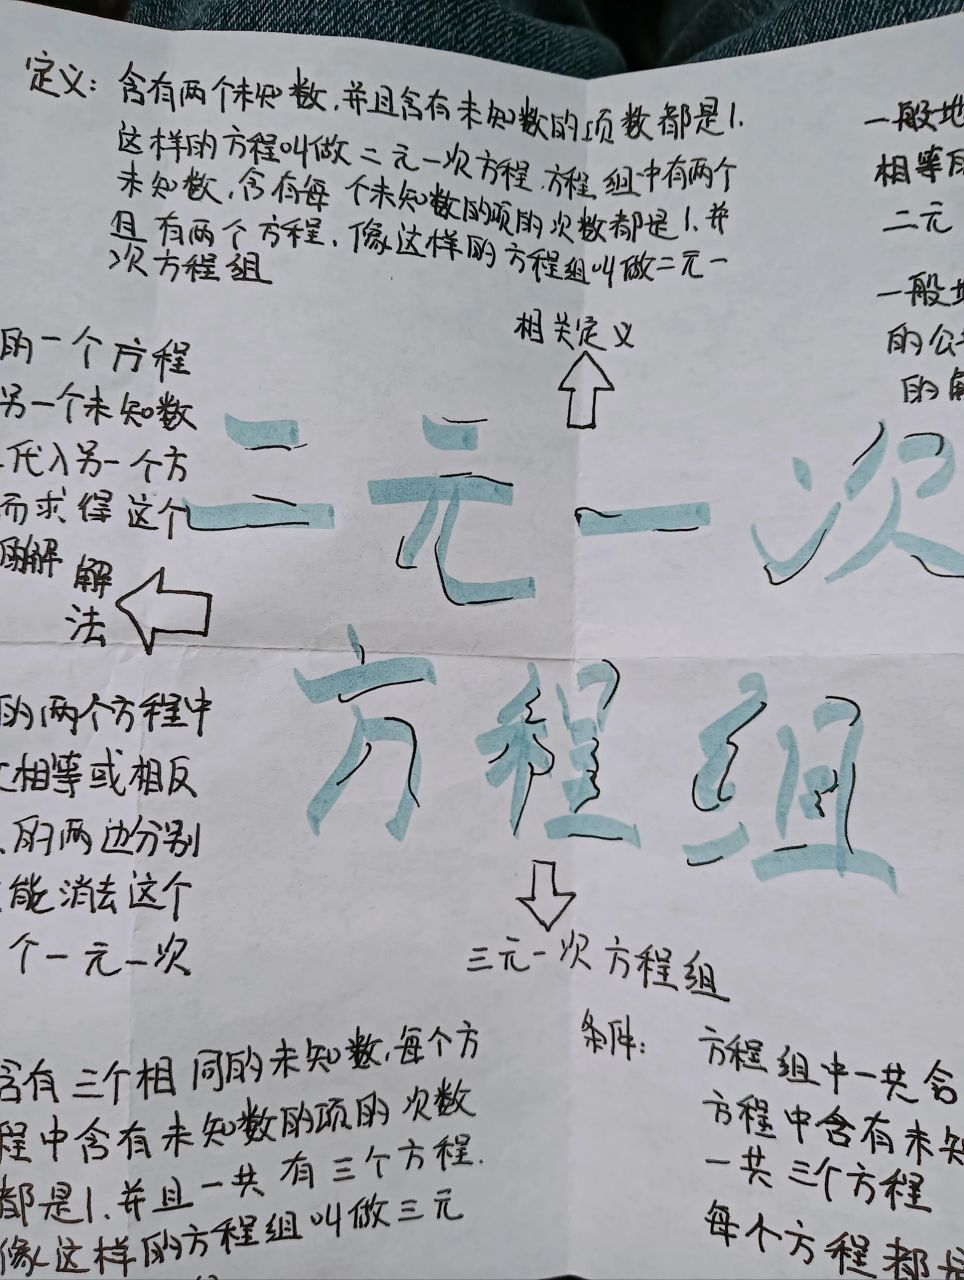 定义：含有两个未知数，并且含有未知数的项数都是1.
这样的方程叫做二元一次方程.方程组中有两个
未知数，含有每个未知数的项的次数都是1.并
且有两个方程，像这样的方程组叫做二元一
次方程组
一般地
相等的
二元
一般地
的公
的解
相关定义
的一个方程
另一个未知数
代入另一个方
而求得这个
的解
解
法
二元一次
方程组
的两个方程中
相等或相反
的两边分别
能消去这个
个一元一次
三元一次方程组
含有三个相同的未知数，每个方
程中含有未知数的项的次数
都是1.并且一共有三个方程.
像这样的方程组叫做三元
条件：
方程组中一共含
方程中含有未知
一共三个方程
每个方程都是